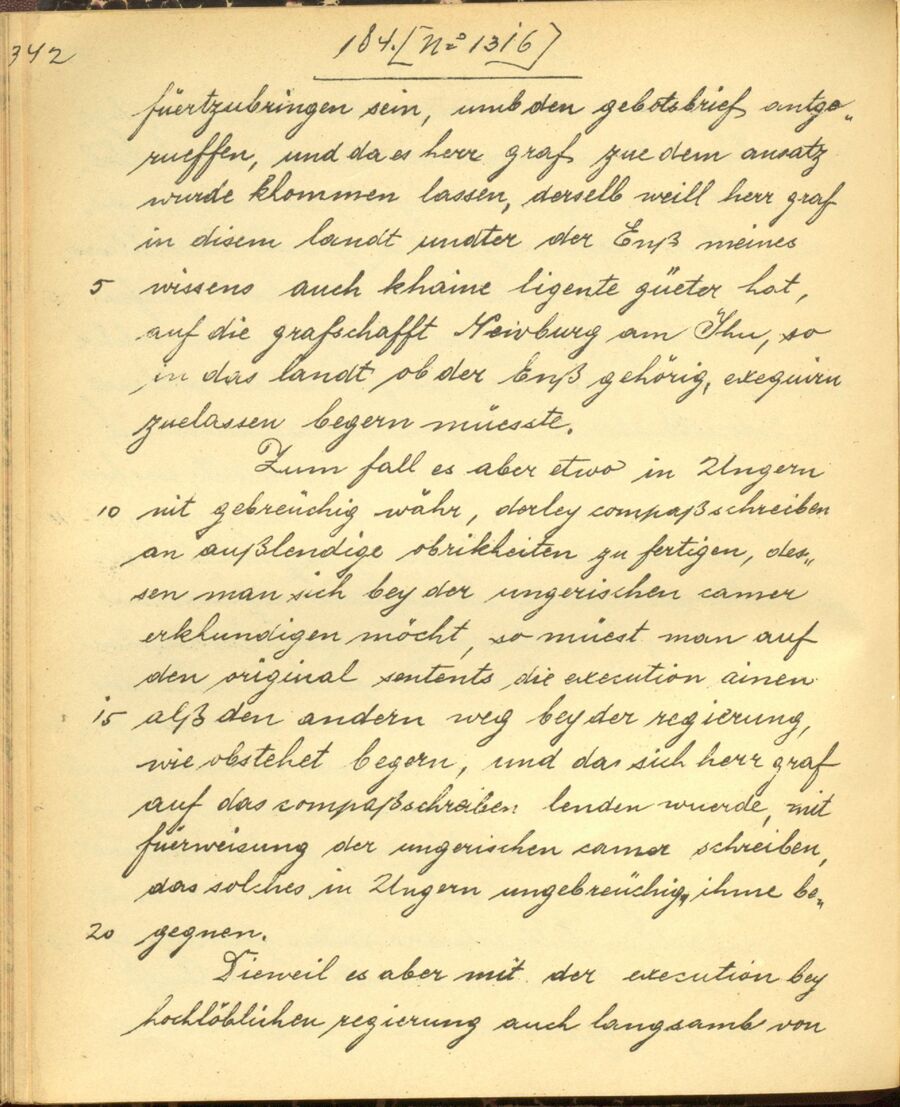 342
184. [No 1316]
füertzubringen sein, umb den gebotsbrief antge„
rueffen, und da es herr graf zue dem ansatz
wurde khommen lassen, derselb weill herr graf
in disem landt undter der Enß meines
5 wissens auch khaine ligente güeter hat,
auf die grafschafft Neivburg am Ihn, so
in das landt ob der Enß gehörig, exequirn
zuelassen begern müesste.
Zum fall es aber etwo in Ungern
10 nit gebreüchig währ, derley compaßschreiben
an außlendige obrikheiten zu fertigen, des„
sen man sich bey der ungerischen camer
erkhundigen möcht, so müest man auf
den original sentents die execution ainen
15 alß den andern weg bey der regierung,
wie obstehet begern, und da sich herr graf
auf das compaßschreiben lenden wuerde, mit
füerweisung der ungerischen camer schreiben,
das solches in Ungern ungebreüchig, ihme be„
20 gegnen.
Dieweil es aber mit der execution bey
hochlöblichen regierung auch langsamb von